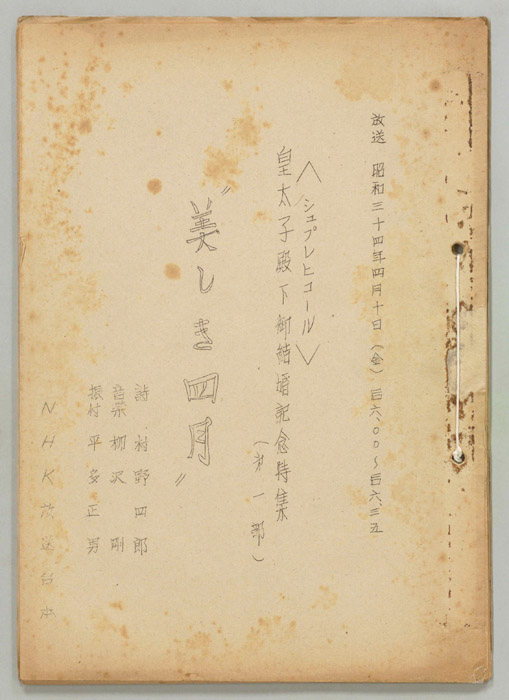 放送 昭和三十四年四月十日(金)后六.〇〇~后六.三五
<シュプレヒコール>
皇太子殿下御結婚記念特集
(第一部)
"美しき四月"
詩 村野四郎
音楽 柳沢剛
振付 平多正男
NHK放送台本